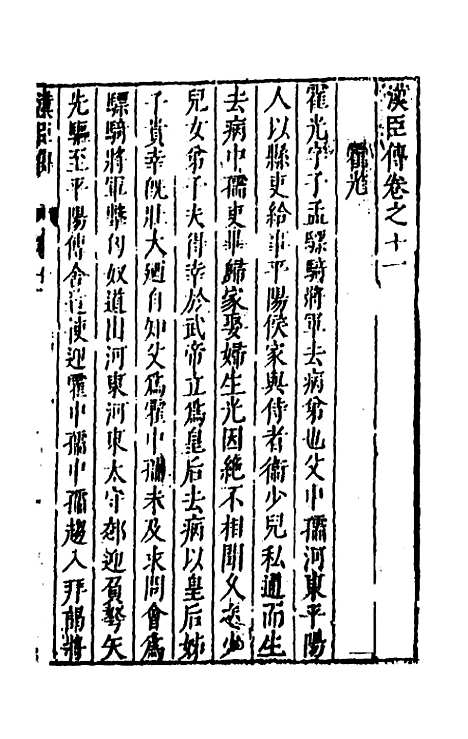 漢臣傳卷之十一
霍光
霍光字子孟驃騎將軍去病弟也父中孺河東平陽
人以縣吏給事平陽侯家與侍者衛少兒私通而生
去病中孺吏畢歸家娶婦生光因絕不相聞久之少
兒女弟子夫得幸於武帝立爲皇后去病以皇后姊
子貴幸既壯大廼自知父爲霍中孺未及求問會爲
驃騎將軍擊匈奴道出河東河東太守郊迎負弩矢
先驅至平陽傳舍遣使迎霍中孺中孺趨入拜謁將
漢臣傳